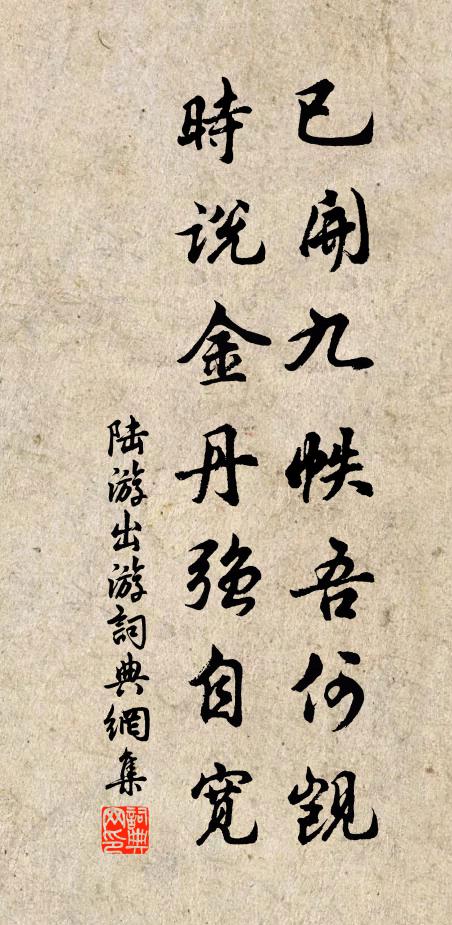 已開九帙吾何覬
時說金丹強自寬
陸游出游詞典網集
詞典網印